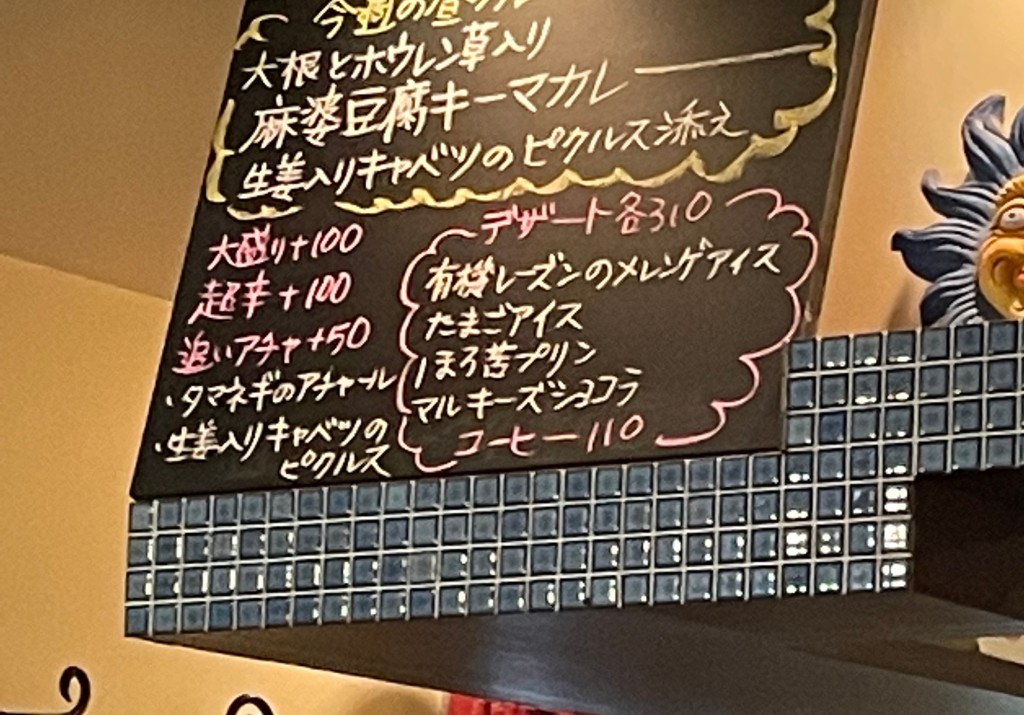 今週の昼カレー
大根とホウレン草入り
麻婆豆腐キーマカレー
生姜入りキャベツのピクルス添え
大盛り+100
超辛+100
追いアチャ+50
・タマネギのアチャール
・生姜入りキャベツの
ピクルス
デザート各310
有機レーズンのメレンゲアイス
たまごアイス
ほろ苦プリン
マルキーズショコラ
コーヒー110